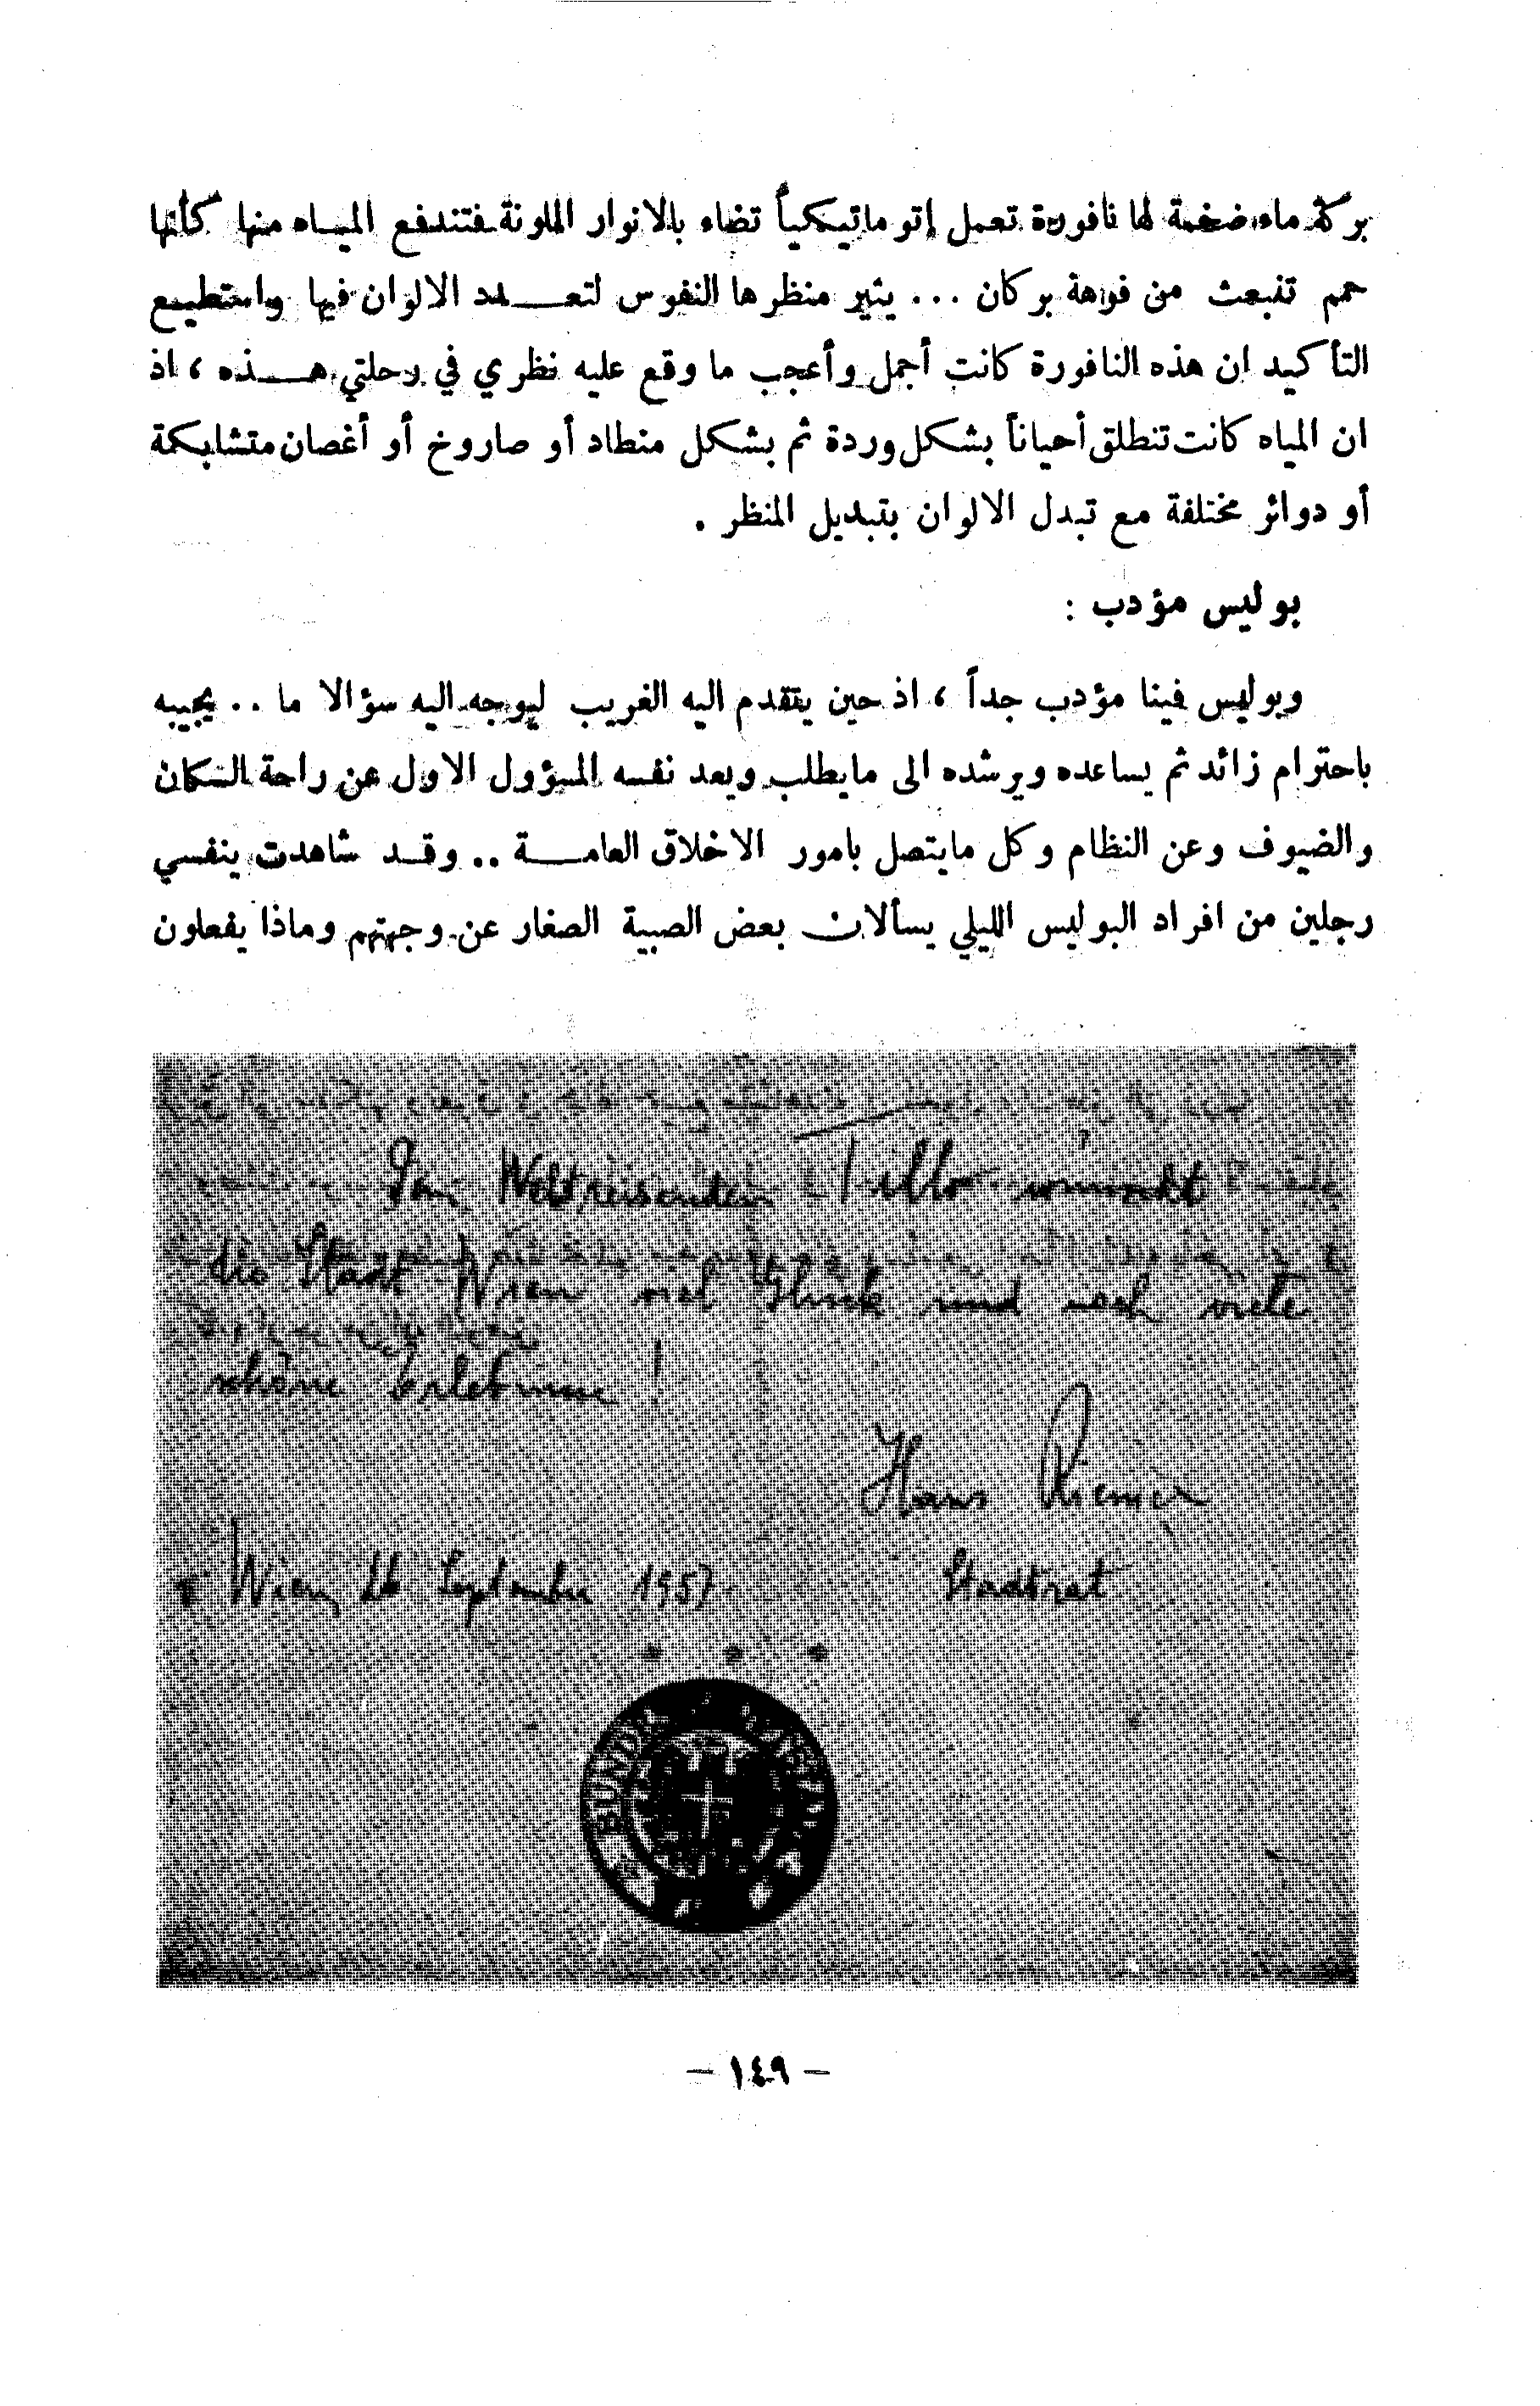 بركة ماء ضخمة لها نافورة تعمل إتوماتيكياً تضاء بالانوار الملونة فتندفع الميــاه منها كأنها
حمم تنبعث من فوهة بركان ... يثير منظرها النفوس لتعــــدد الالوان فيها واستطيـع
التأكيد ان هذه النافورة كانت أجمل وأعجب ما وقع عليه نظري في رحلتي هــــذه ، اذ
ان المياه كانت تنطلق أحياناً بشكل وردة ثم بشكل منطاد أو صاروخ أو أغصان متشابكة
أو دوائر مختلفة مع تبدل الالوان بتبديل المنظر .
بوليس مؤدب :
وبوليس فينا مؤدب جداً ، اذ حين يتقدم اليه الغريب ليوجه اليه سؤالا ما .. يجيبه
باحترام زائد ثم يساعده ويرشده الى مايطلب ويعد نفسه المسؤول الاول عن راحة السكان
والضيوف وعن النظام وكل مايتصل بامور الاخلاق العامــــة .. وقــد شاهدت بنفسي
رجلين من افراد البوليس الليلي يسألان بعض الصبية الصغار عن وجهتهم وماذا يفعلون
Dem Weltreisenden Tillo wünscht
die Stadt Wien viel Glück und noch viele
schöne Erlebnisse !
Hans Riemer
Wien, 26 September 1957 Stadtrat
BUND
- ١٤٩ -